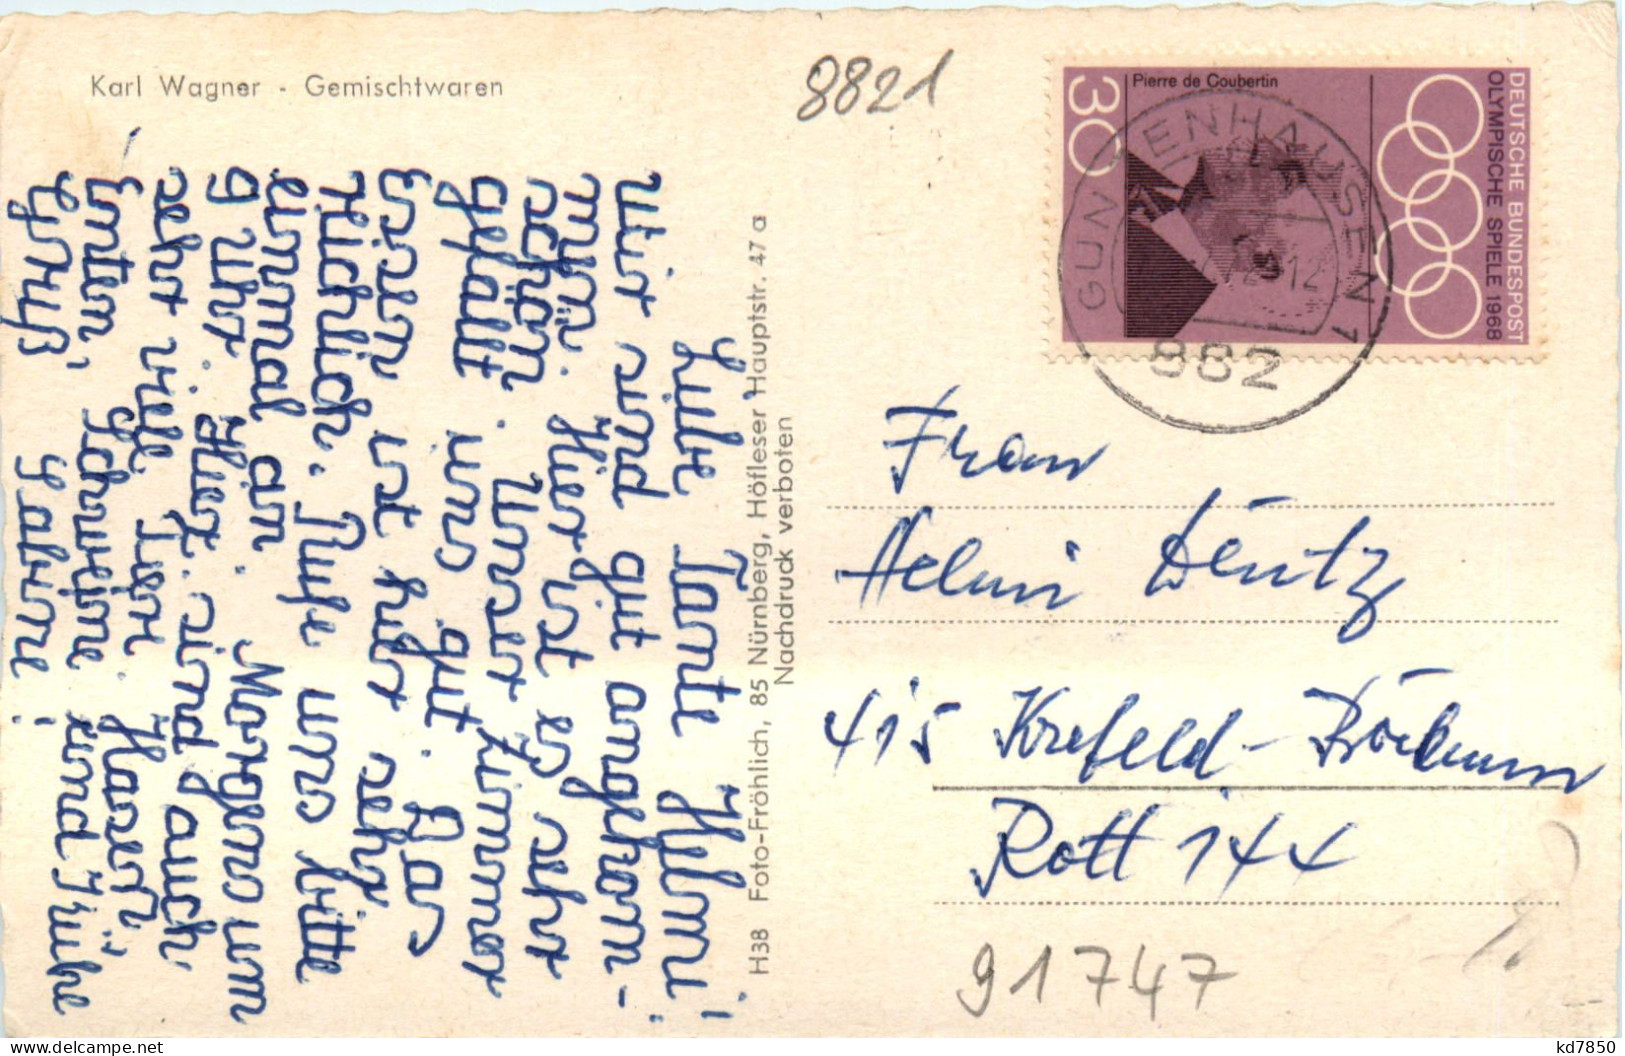 Karl Wagner - Gemischtwaren
8821
Liebe Tante Helmi!
Wir sind gut angekom-
men. Hier ist es sehr
schön. Unser Zimmer
gefällt uns gut. Das
Essen ist hier sehr
reichlich. Rufe uns bitte
einmal an. Morgens um
9 Uhr. Hier sind auch
sehr viele Tiere Hasen,
Enten, Schweine und Kühe
Gruß Sabine!
H38 Foto-Fröhlich, 85 Nürnberg, Höfleser Hauptstr. 47 a
Nachdruck verboten
30
Pierre de Coubertin
DEUTSCHE BUNDESPOST
OLYMPISCHE SPIELE 1968
GUNZENHAUSEN 1
882
Frau
Helmi Deutz
415 Krefeld-Böckum
Rott 144
91747
kd7850